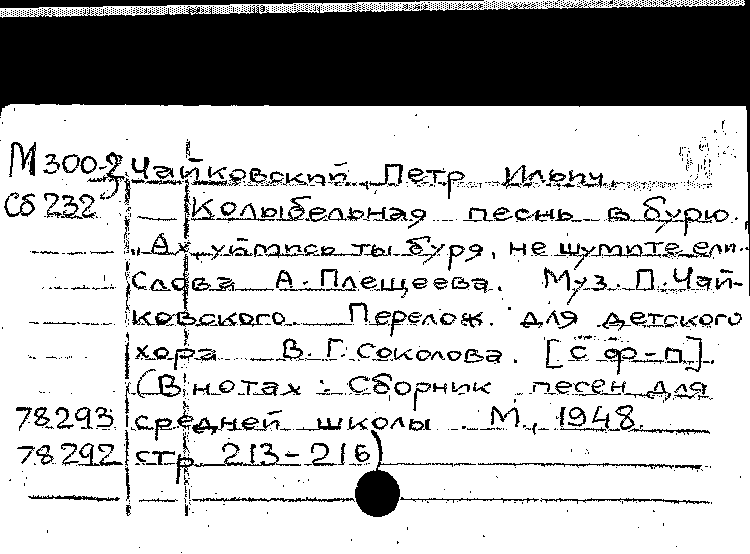 М 300-2 Чайковский, Петр Ильич.
Сб 232 Колыбельная песнь в бурю.
"Ах, уймись ты буря, не шумите ели..
Слова А. Плещеева. Муз. П. Чай-
ковского. Перелож. для детского
хора В. Г. Соколова. [с ф-п].
(В нотах: Сборник песен для
78293 средней школы. М., 1948.
78292 стр. 213-216)